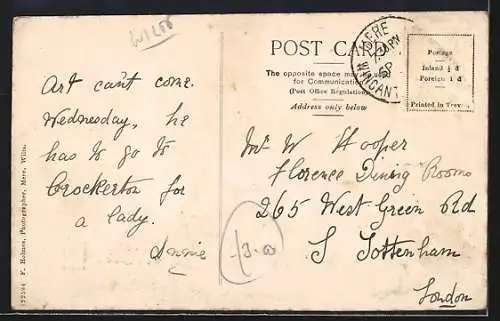 WILTS
POST CARD
The opposite space may be used
for Communication
(Post Office Regulation)
Address only below
MERE
SP
WINCANTON
Postage
Inland ½ d
Foreign 1 d
Printed in
Art can't come
Wednesday, he
has to go to
Crockerton for
a lady.
Annie
Mr W Hooper
Florence Dining Rooms
265 West Green Rd
S Tottenham
London
13.0
122594 F. Holmes, Photographer, Mere, Wilts.